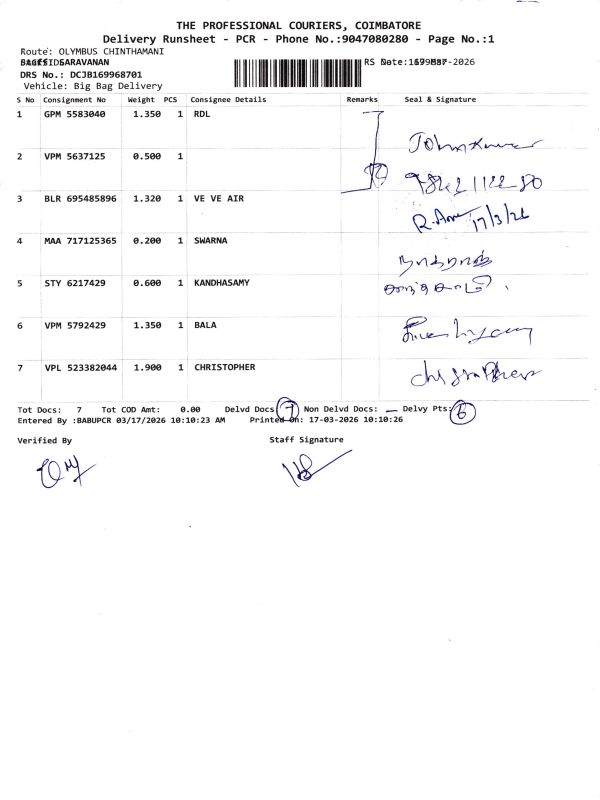 THE PROFESSIONAL COURIERS, COIMBATORE
Delivery Runsheet - PCR - Phone No.:9047080280 - Page No.:1
Route: OLYMBUS CHINTHAMANI
SARAVANAN
DRS No.: DCJB169968701
Vehicle: Big Bag Delivery
S No Consignment No Weight PCS Consignee Details Remarks Seal & Signature
1 GPM 5583040 1.350 1 RDL
2 VPM 5637125 0.500 1
3 BLR 695485896 1.320 1 VE VE AIR 17/3/26
4 MAA 717125365 0.200 1 SWARNA
5 STY 6217429 0.600 1 KANDHASAMY
6 VPM 5792429 1.350 1 BALA
7 VPL 523382044 1.900 1 CHRISTOPHER
Tot Docs: 7 Tot COD Amt: 0.00 Delvd Docs: 7 Non Delvd Docs: — Delvy Pts: 6
Entered By :BABUPCR 03/17/2026 10:10:23 AM Printed On: 17-03-2026 10:10:26
Verified By Staff Signature